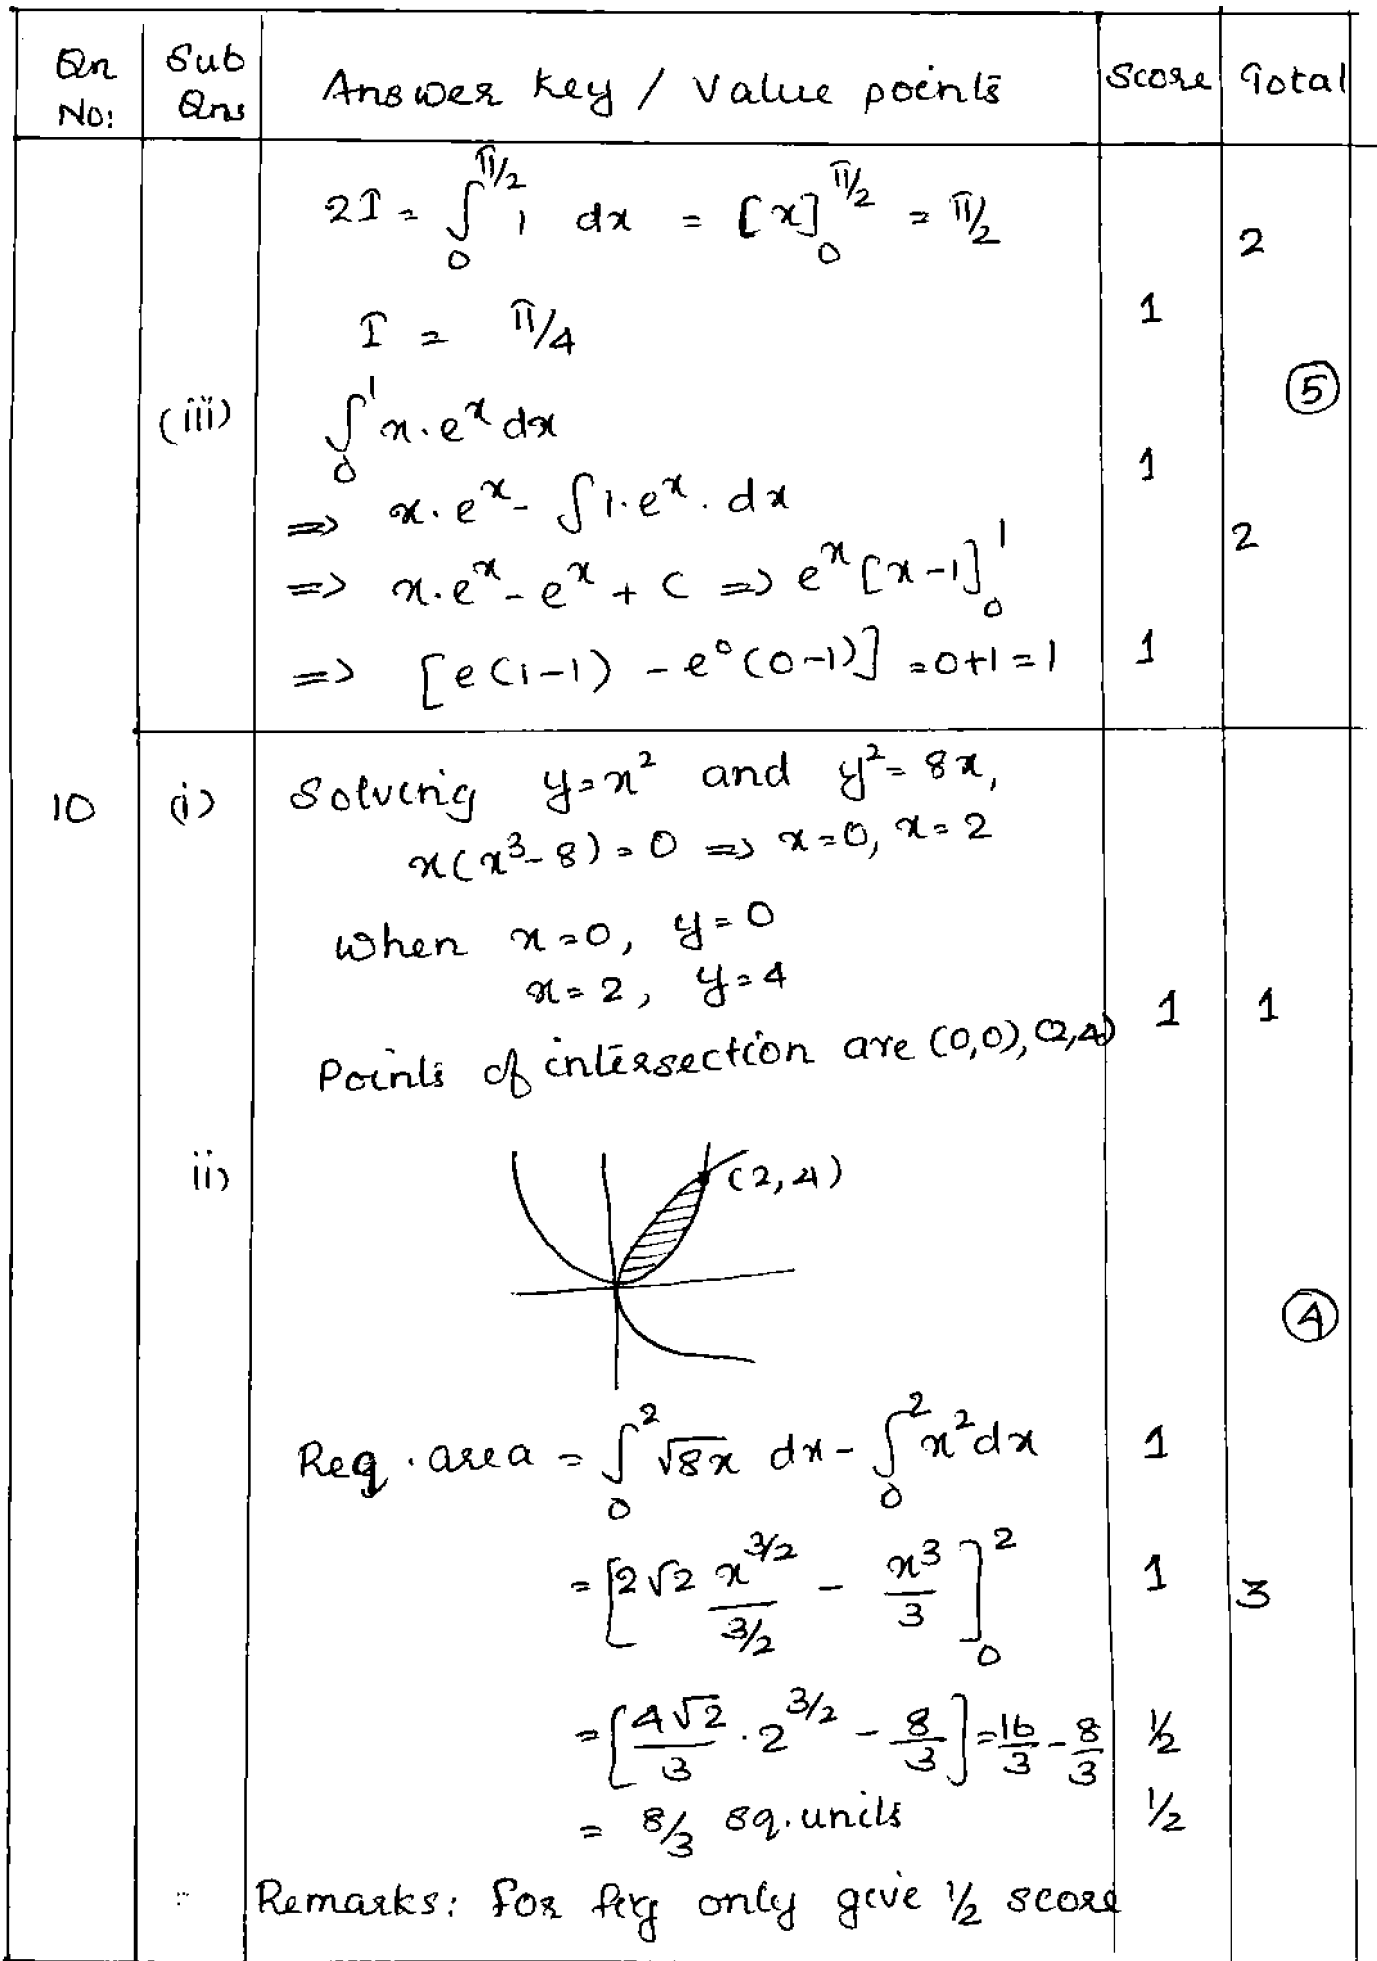 Qn No: | Sub Qns | Answer key / Value points | Score | Total
2I = ∫₀^{π/2} 1 dx = [x]₀^{π/2} = π/2 | | 2
I = π/4 | 1
(5)
(iii) ∫₀¹ x.eˣ dx
⇒ x.eˣ - ∫1.eˣ.dx | 1
⇒ x.eˣ - eˣ + C ⇒ eˣ[x-1]₀¹ | | 2
⇒ [e(1-1) - e⁰(0-1)] = 0+1 = 1 | 1
10 (i) Solving y=x² and y²=8x,
x(x³-8)=0 ⇒ x=0, x=2
When x=0, y=0
x=2, y=4
Points of intersection are (0,0), (2,4) | 1 | 1
ii) (2,4)
(4)
Req. area = ∫₀² √8x dx - ∫₀² x² dx | 1
= [2√2 x^{3/2}/(3/2) - x³/3]₀² | 1 | 3
= [4√2/3 . 2^{3/2} - 8/3] = 16/3 - 8/3 | ½
= 8/3 sq.units | ½
Remarks: for fig only give ½ score